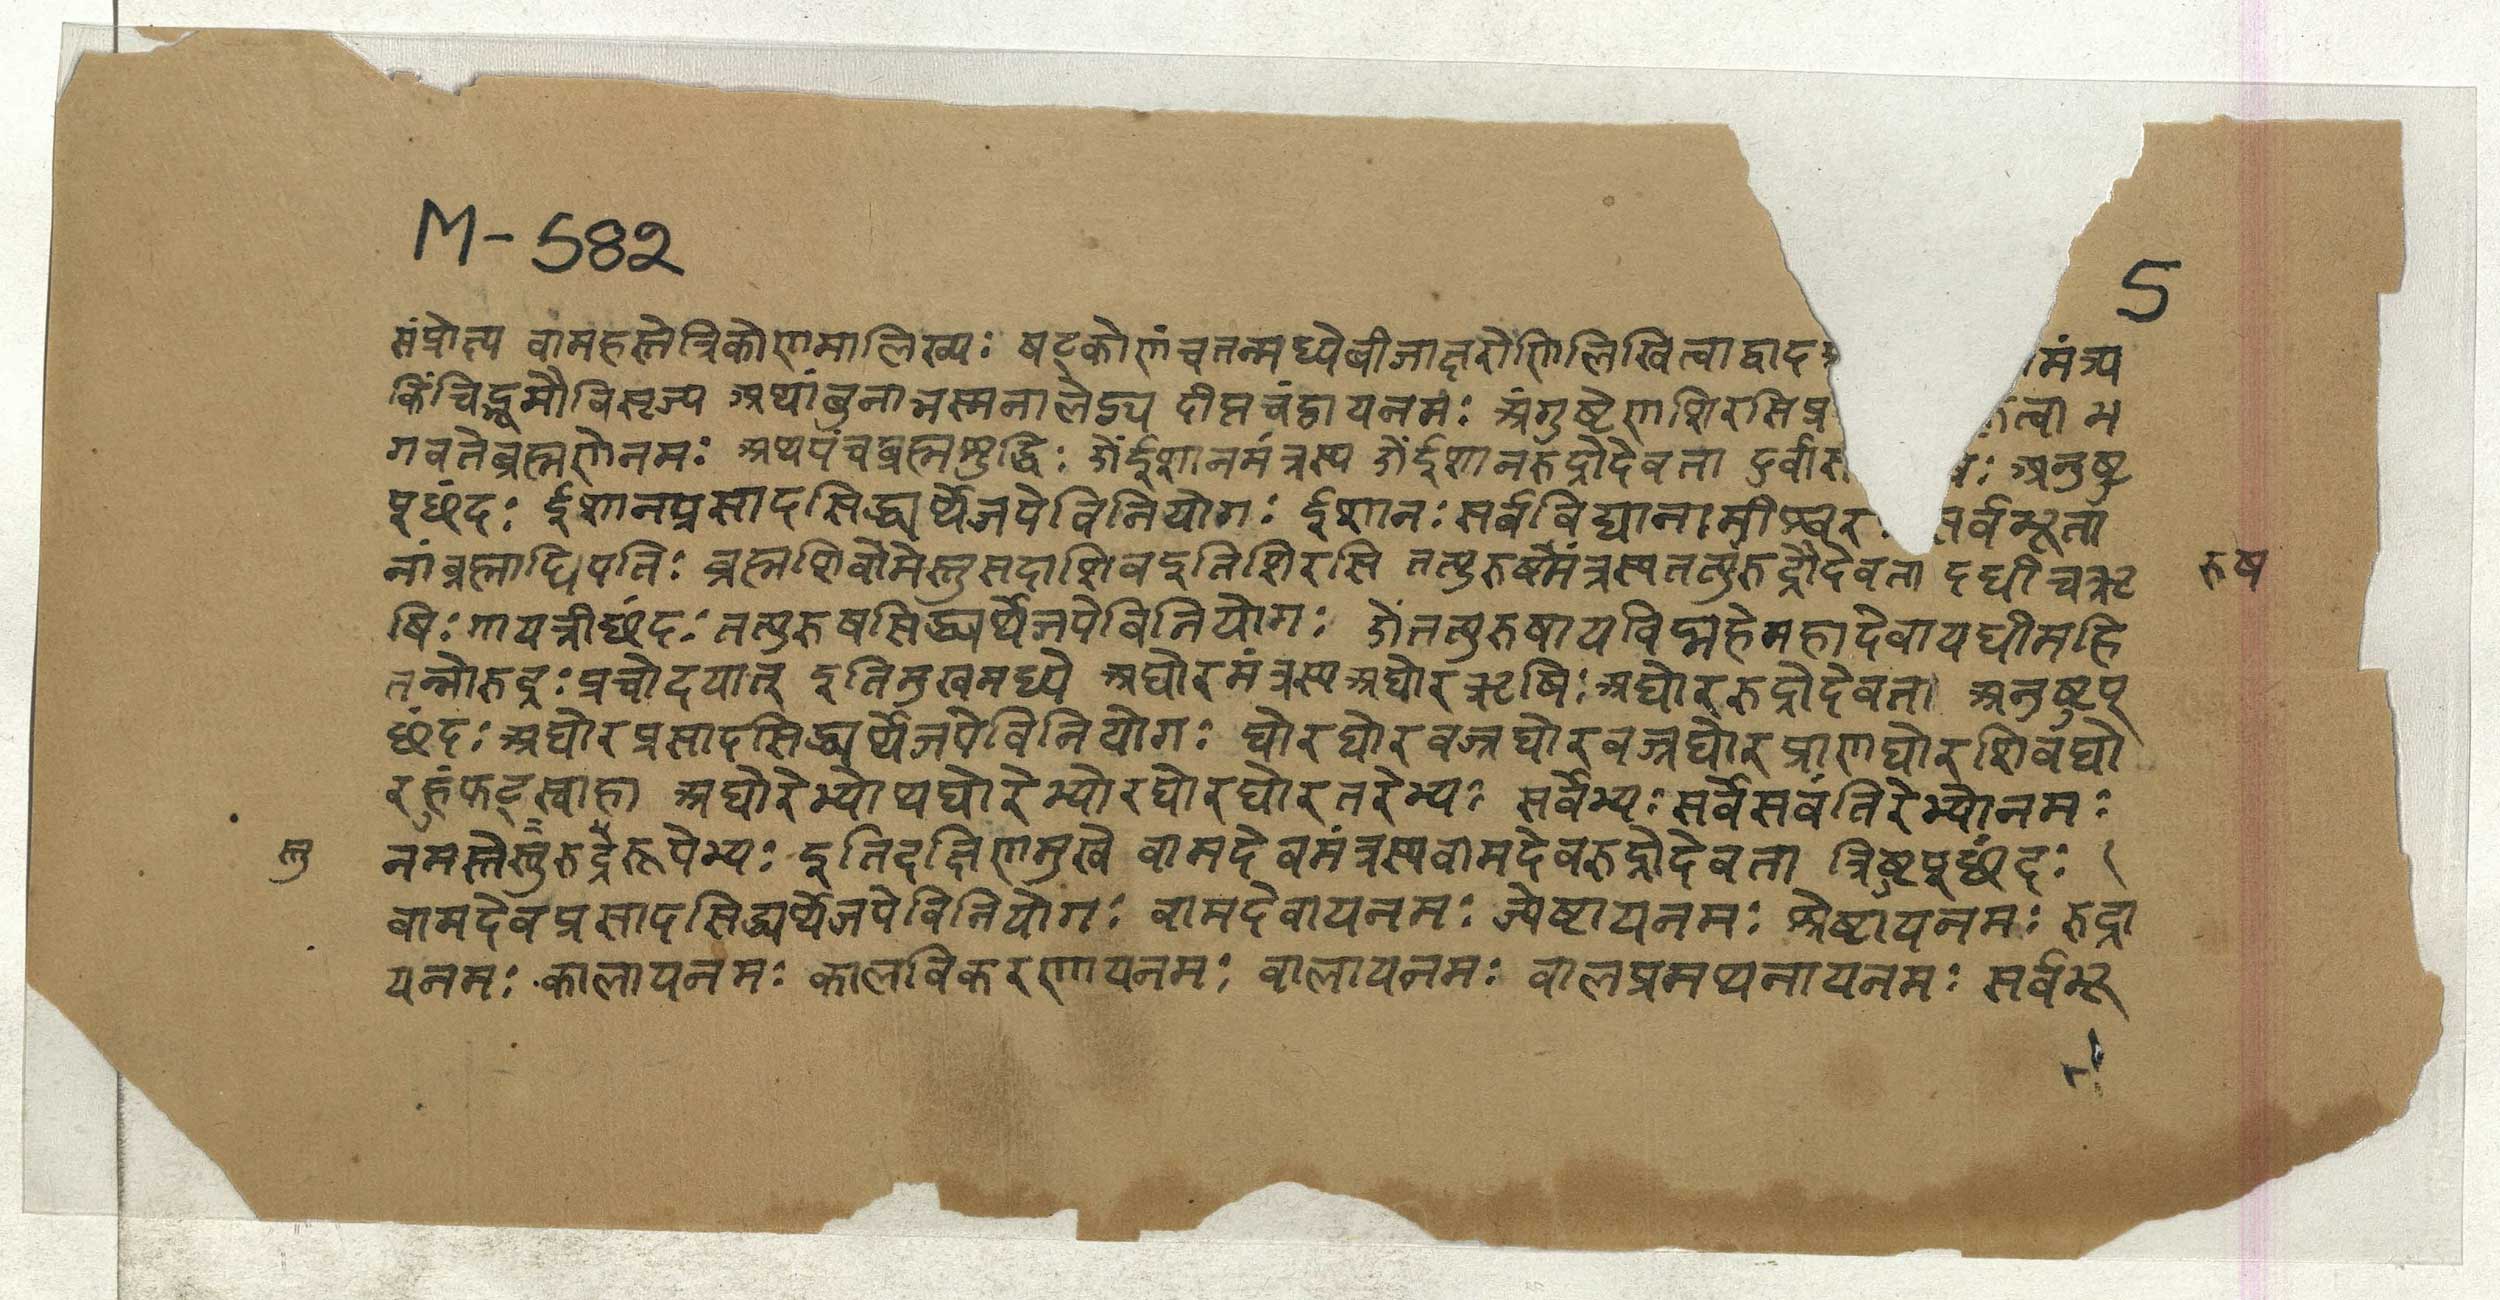 M-582
5
संप्रोक्ष्य वामहस्तेत्रिकोणमालिख्यः षट्कोणंचतन्मध्येबीजाक्षरोणिलिखित्वाद्वाद मंत्र्य
किंचिद्भूमौविसृज्य अथांबुनाभस्मनालेड्य दीप्तचंद्रायनमः अंगुष्टेणशिरसिप्र त्वा भ
गवतेब्रह्मणेनमः अथपंचब्रह्मशुद्धिः ॐईशानमंत्रस्य ॐईशानरुद्रोदेवता दुर्वास अनुष्टु
प्छंदः ईशानप्रसादसिद्ध्यर्थेजपेविनियोगः ईशानः सर्वविद्यानामीश्वर र्वभूता
नांब्रह्माधिपतिः ब्रह्मशिवोमेस्तुसदाशिवइतिशिरसि तत्पुरुषमंत्रस्यतत्पुंरुद्रोदेवता दधीचऋ रुष
षिः गायत्रीछंदः तत्पुरुषसिद्ध्यर्थेजपेविनियोगः ॐतत्पुरुषायविद्महेमहादेवायधीमहि
तन्नोरुद्रः प्रचोदयात् इतिमुखमध्ये अघोरमंत्रस्यअघोरऋषिः अघोररुद्रोदेवता अनुष्टुप्
छंदः अघोरप्रसादसिद्ध्यर्थेजपेविनियोगः घोरघोरवज्रघोरवज्रघोरप्राणघोरशिवंघो
रहुंफट्स्वाहा अघोरेभ्योथघोरेभ्योरघोरघोरतरेभ्यः सर्वेभ्यः सर्वेसर्वंतिरेभ्योनमः
स्तु नमस्तेस्तुरुद्ररूपेभ्यः इतिदक्षिणमुखे वामदेवमंत्रस्यवामदेवरुद्रोदेवता त्रिष्टुप्छंदः
वामदेवप्रसादसिद्ध्यर्थेजपेविनियोगः वामदेवायनमः ज्येष्टायनमः श्रेष्टायनमः रुद्रा
यनमः कालायनमः कालविकरणायनमः वालायनमः वालप्रमथनायनमः सर्वभू